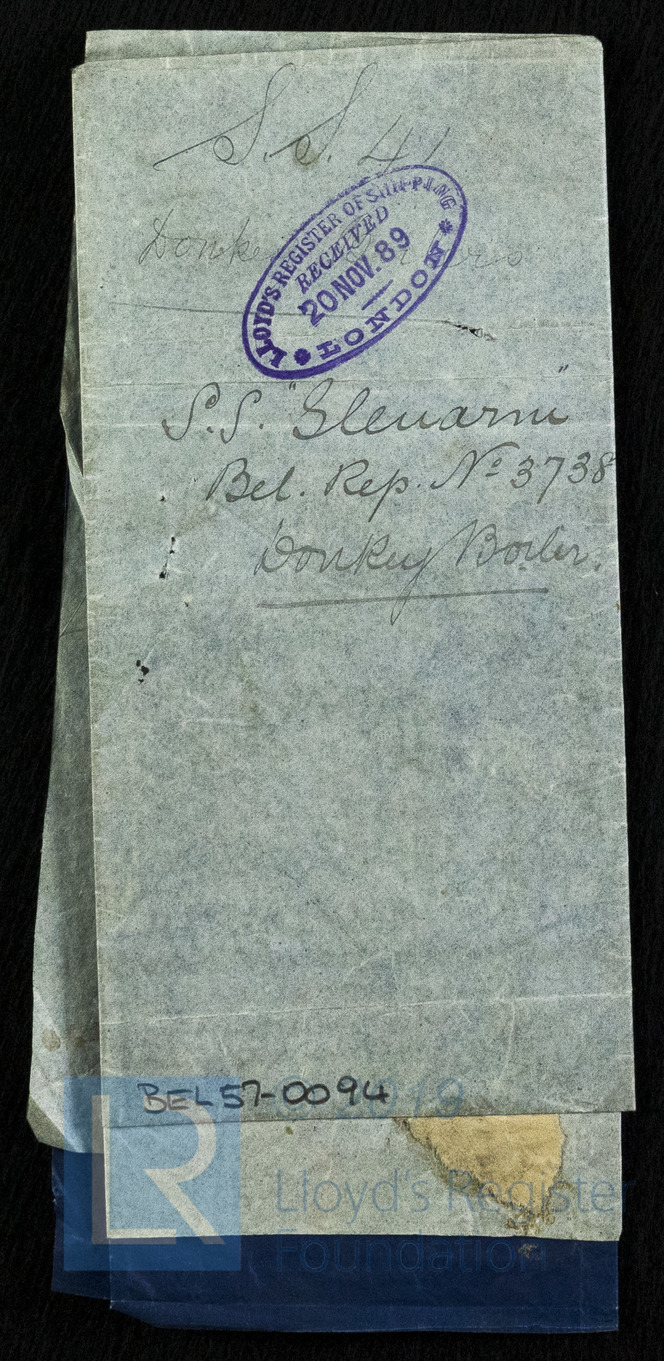 S.S. 41
Donkey Boilers
LLOYD'S REGISTER OF SHIPPING
RECEIVED
20 NOV. 89
LONDON
S.S. "Glenarm"
Bel. Rep. Nº 3738
Donkey Boiler.
BEL57-0094
© 2019
Lloyd's Register
Foundation
LR